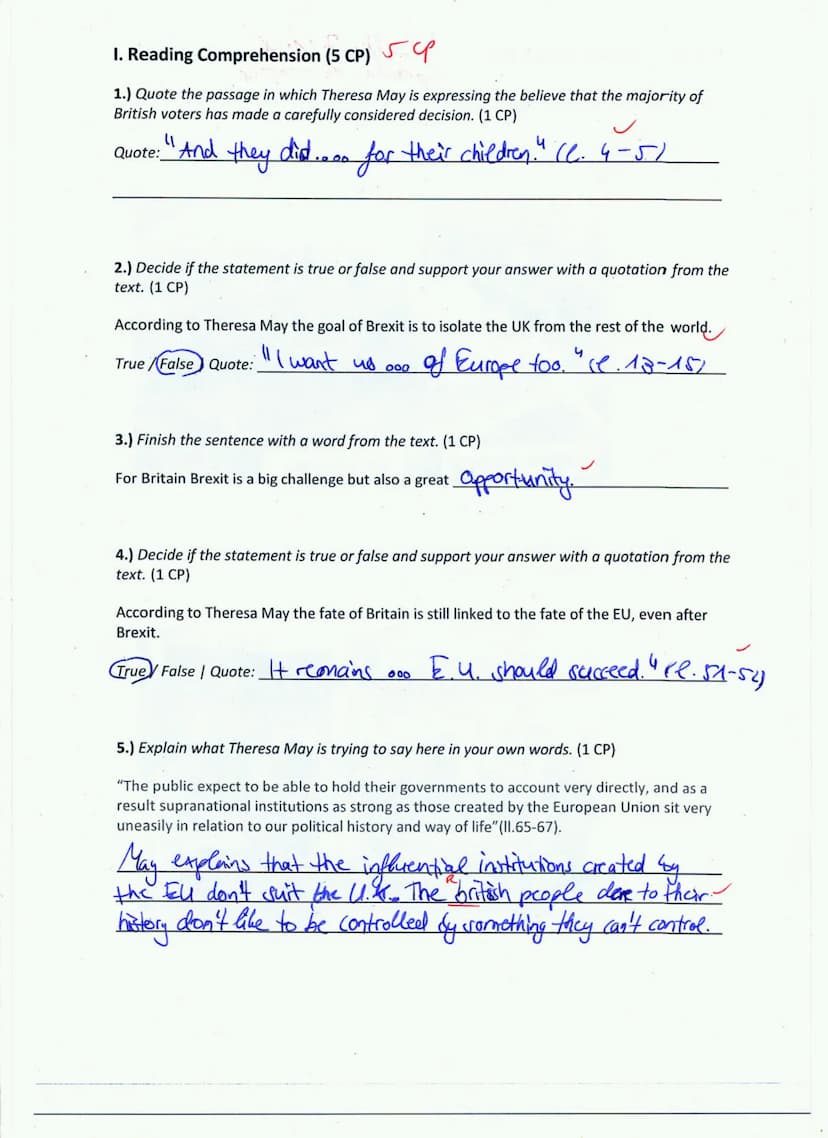 I. Reading Comprehension (5 CP) 5 CP
1.) Quote the passage in which Theresa May is expressing the believe that the majority of
British voters has made a carefully considered decision. (1 CP)
Quote: "And they did.... for their children." (l. 4-5)
2.) Decide if the statement is true or false and support your answer with a quotation from the
text. (1 CP)
According to Theresa May the goal of Brexit is to isolate the UK from the rest of the world.
True / False Quote: "I want us ... of Europe too." (l. 13-15)
3.) Finish the sentence with a word from the text. (1 CP)
For Britain Brexit is a big challenge but also a great opportunity.
4.) Decide if the statement is true or false and support your answer with a quotation from the
text. (1 CP)
According to Theresa May the fate of Britain is still linked to the fate of the EU, even after
Brexit.
True / False | Quote: It remains ... E.U. should succeed." (l. 51-52)
5.) Explain what Theresa May is trying to say here in your own words. (1 CP)
"The public expect to be able to hold their governments to account very directly, and as a
result supranational institutions as strong as those created by the European Union sit very
uneasily in relation to our political history and way of life"(ll.65-67).
May explains that the influential institutions created by
the EU don't suit the U.K. The british people to their
R
history don't like to be controlled by something they can't control.